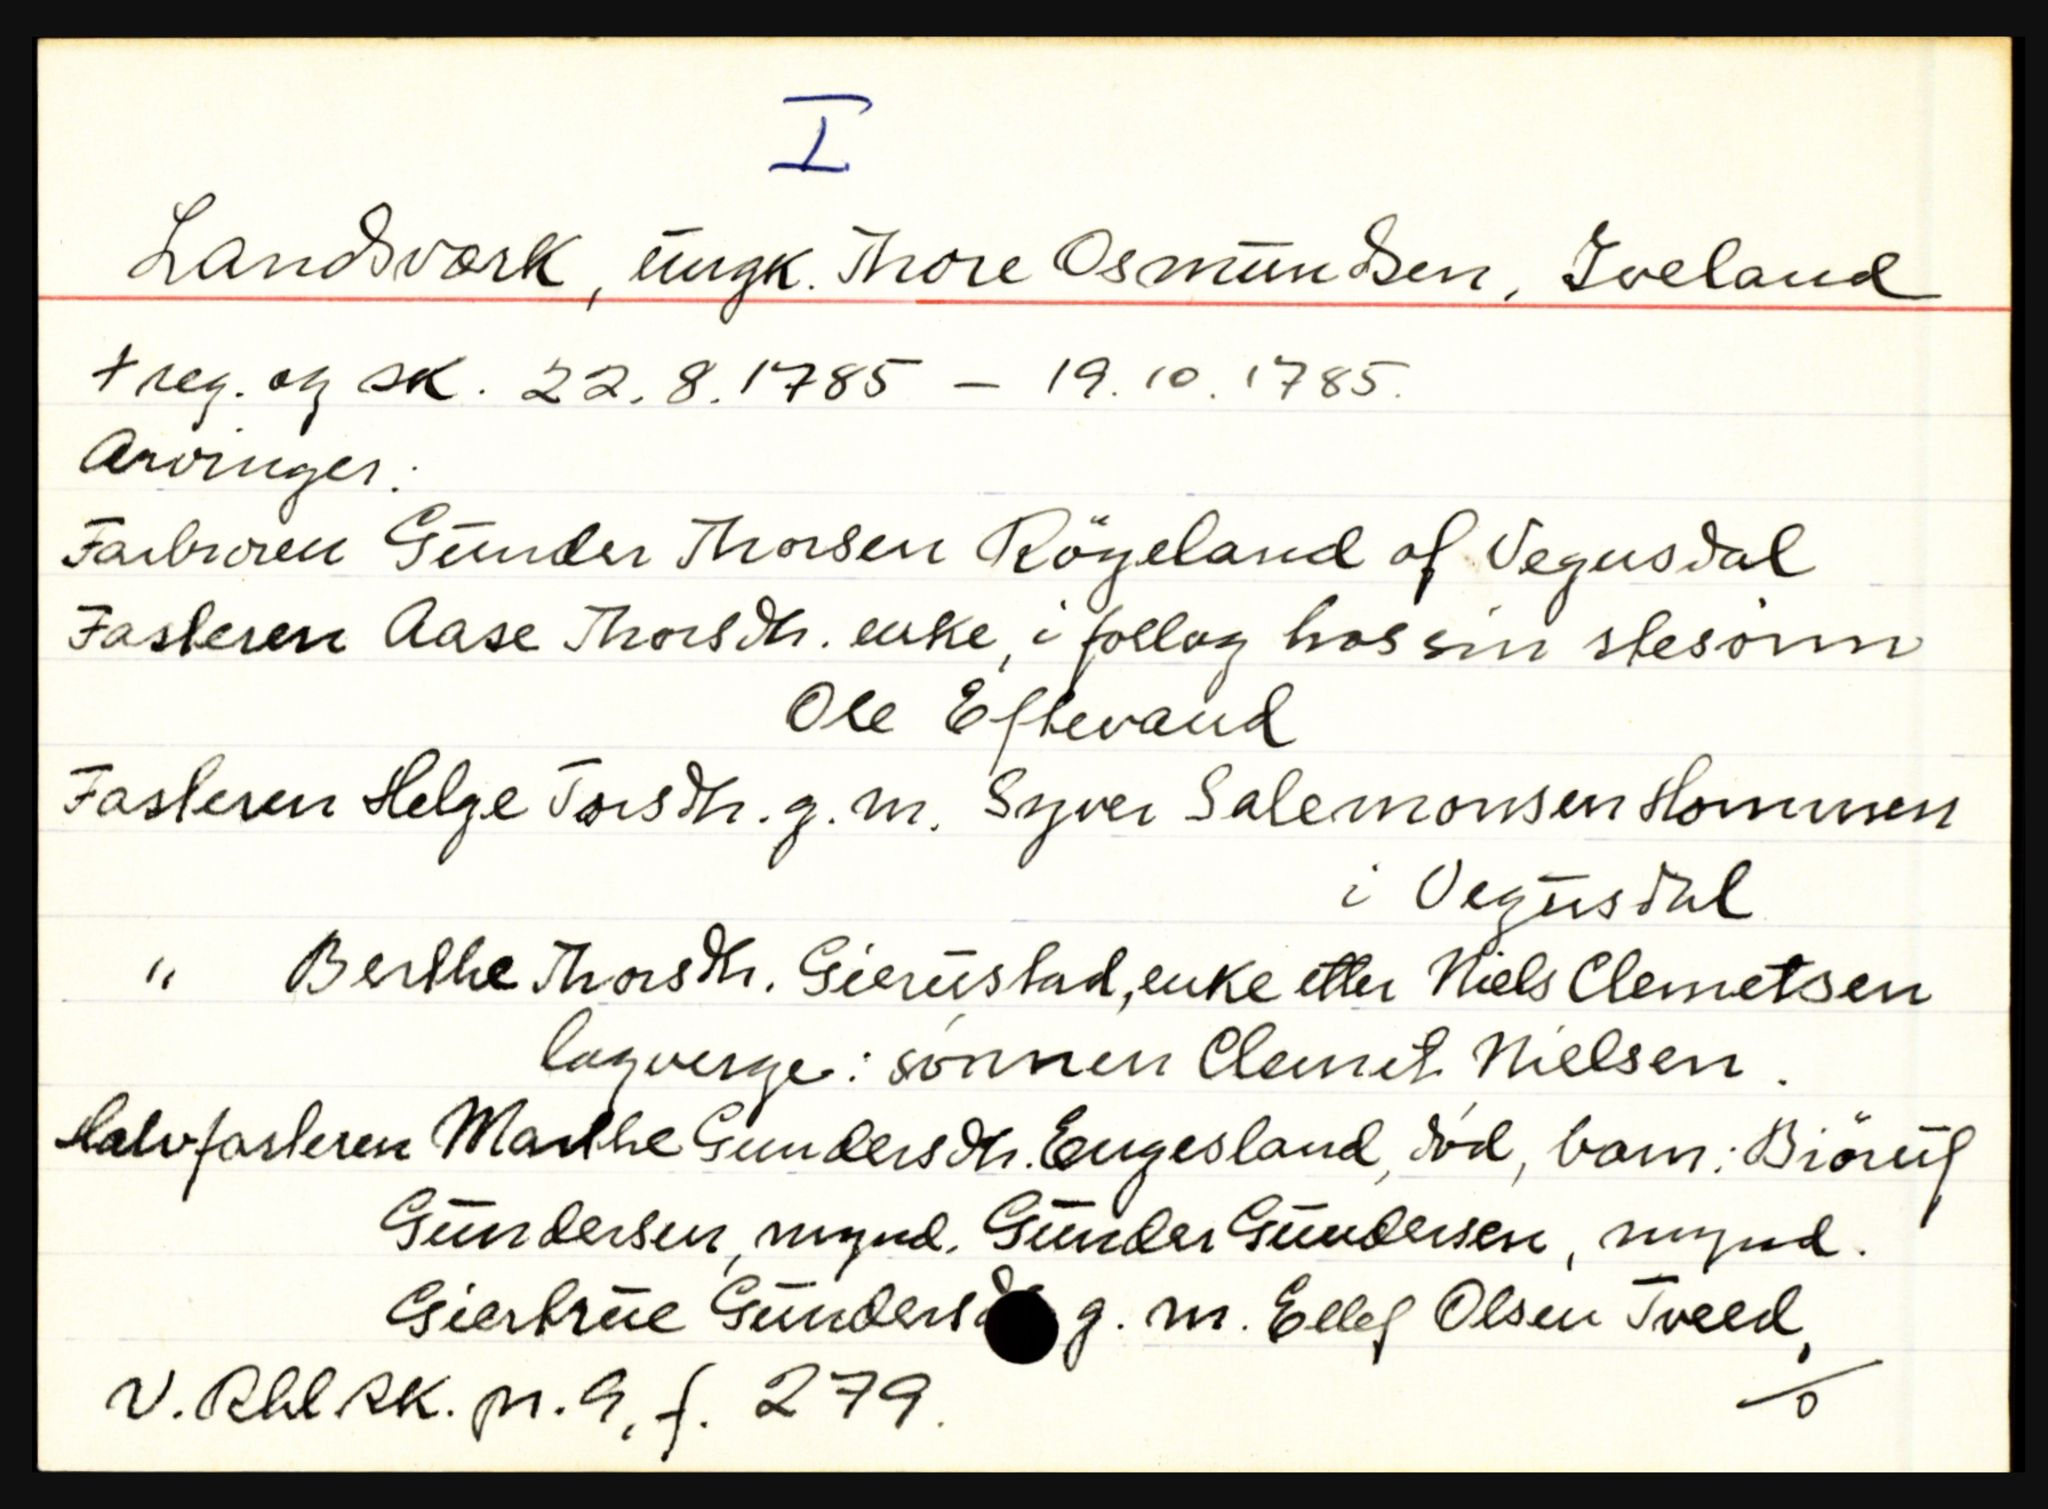 I
Landsverk, ungk. Thore Osmundsen, Iveland
+ reg. og sk. 22.8.1785 – 19.10.1785.
Arvinger:
Farbroren Gunder Thorsen Rögeland af Vegusdal
Fasteren Aase Thorsdtr. enke, i follog hos sin stesönn
Ole Eftevand
Fasteren Helge Torsdtr. g. m. Syver Salemonsen Hommen
i Vegusdal
" Berthe Thorsdtr. Gierustad, enke etter Niels Clemetsen
lagverge: sönnen Clemet Nielsen.
Halvfasteren Marthe Gundersdtr. Engesland, död, barn: Biörüf
Gundersen, mynd. Gunder Gundersen, mynd.
Giertrue Gundersd g. m. Ellef Olsen Tveed,
V. Rbl. sk. pr. 9, f. 279.